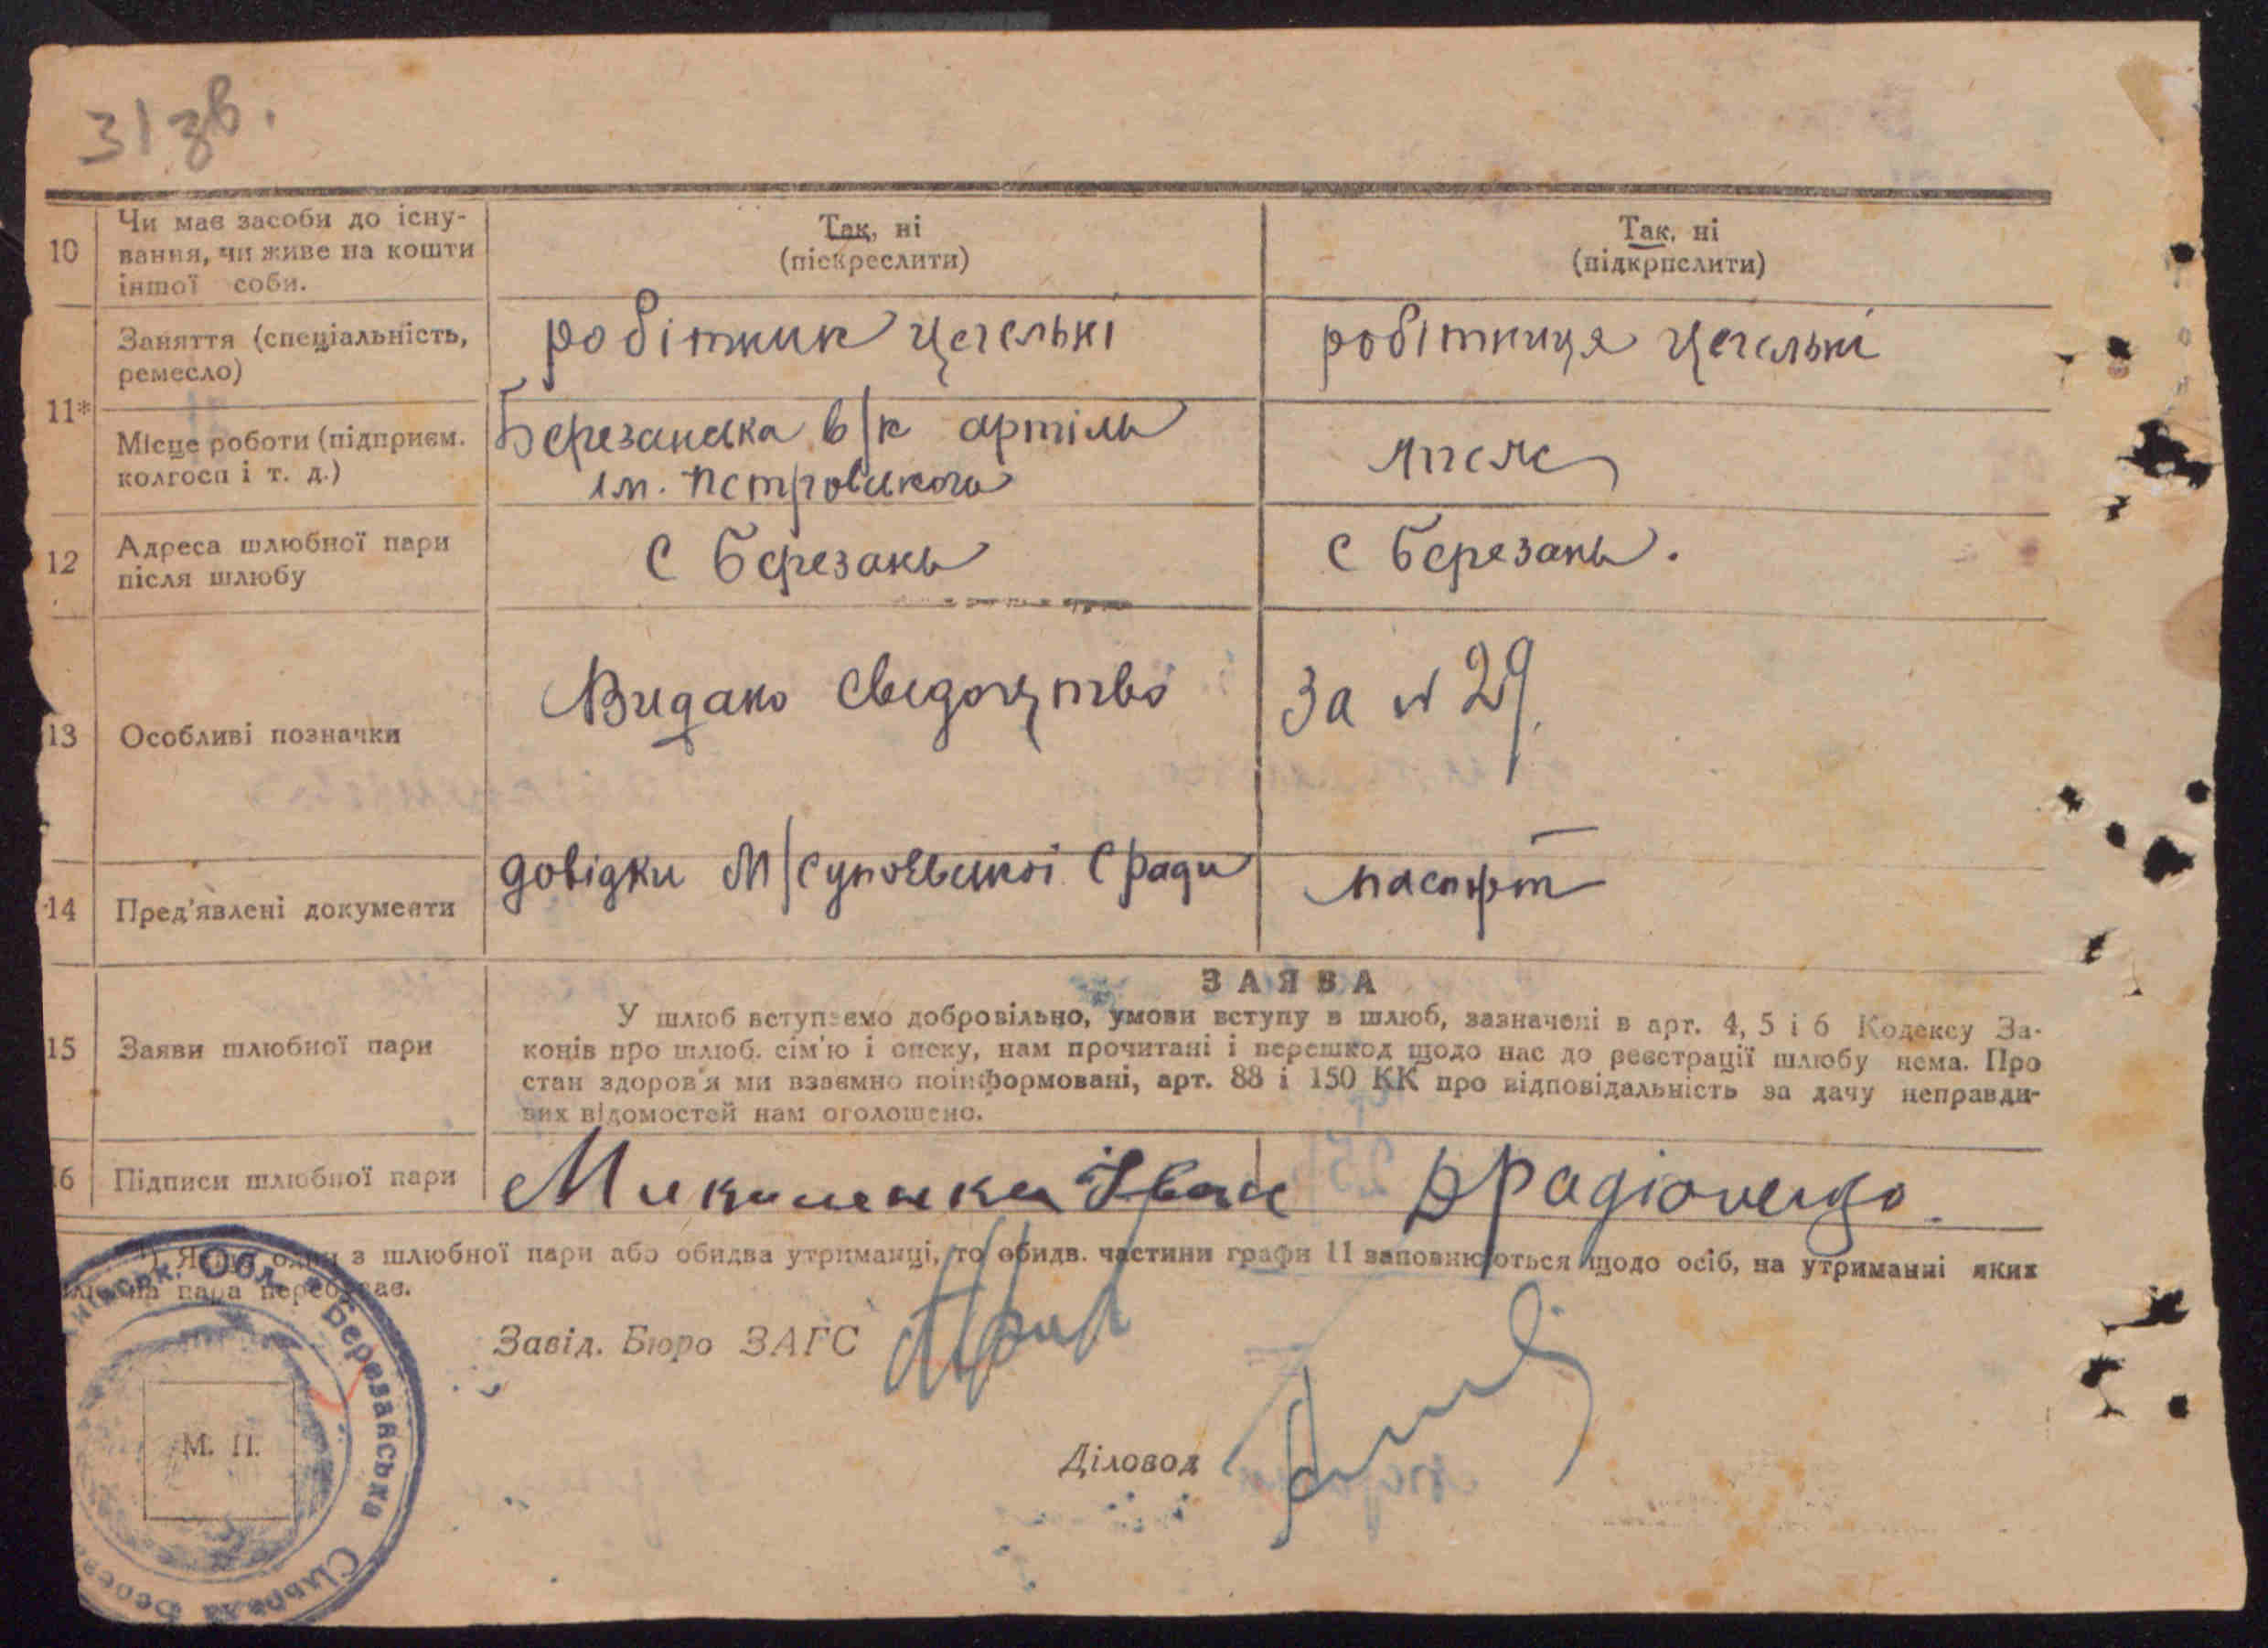 31 зв.
10
Чи має засоби до існу-
вання, чи живе на кошти
іншої соби.
Так, ні
(піскреслити)
Так, ні
(підкрпслити)
11*
Заняття (спеціальність,
ремесло)
робітник цегельні
робітниця цегельні
Місце роботи (підприєм.
колгосп і т. д.)
Березанська в/к артіль
ім. Петровського
12
Адреса шлюбної пари
після шлюбу
с Березань
с Березань.
13
Особливі позначки
Видано свидоцтво
За N 29.
14
Пред'явлені документи
довідки М/Супоєвської С/ради
паспорт
ЗАЯВА
15
Заяви шлюбної пари
У шлюб вступаємо добровільно, умови вступу в шлюб, зазначені в арт. 4, 5 і 6 Кодексу За-
конів про шлюб. сім'ю і опеку, нам прочитані і перешкод щодо нас до реєстрації шлюбу нема. Про
стан здоров'я ми взаємно поінформовані, арт. 88 і 150 КК про відповідальність за дачу неправди-
вих відомостей нам оголошено.
16
Підписи шлюбної пари
Іван
Радіоненко
*) Якщо один з шлюбної пари або обидва утриманці, то обидв. частини графи 11 заповнюються щодо осіб, на утриманні яких
пара перебуває.
Обл. * Березанська Сільрада
М. П.
Завід. Бюро ЗАГС
Діловод